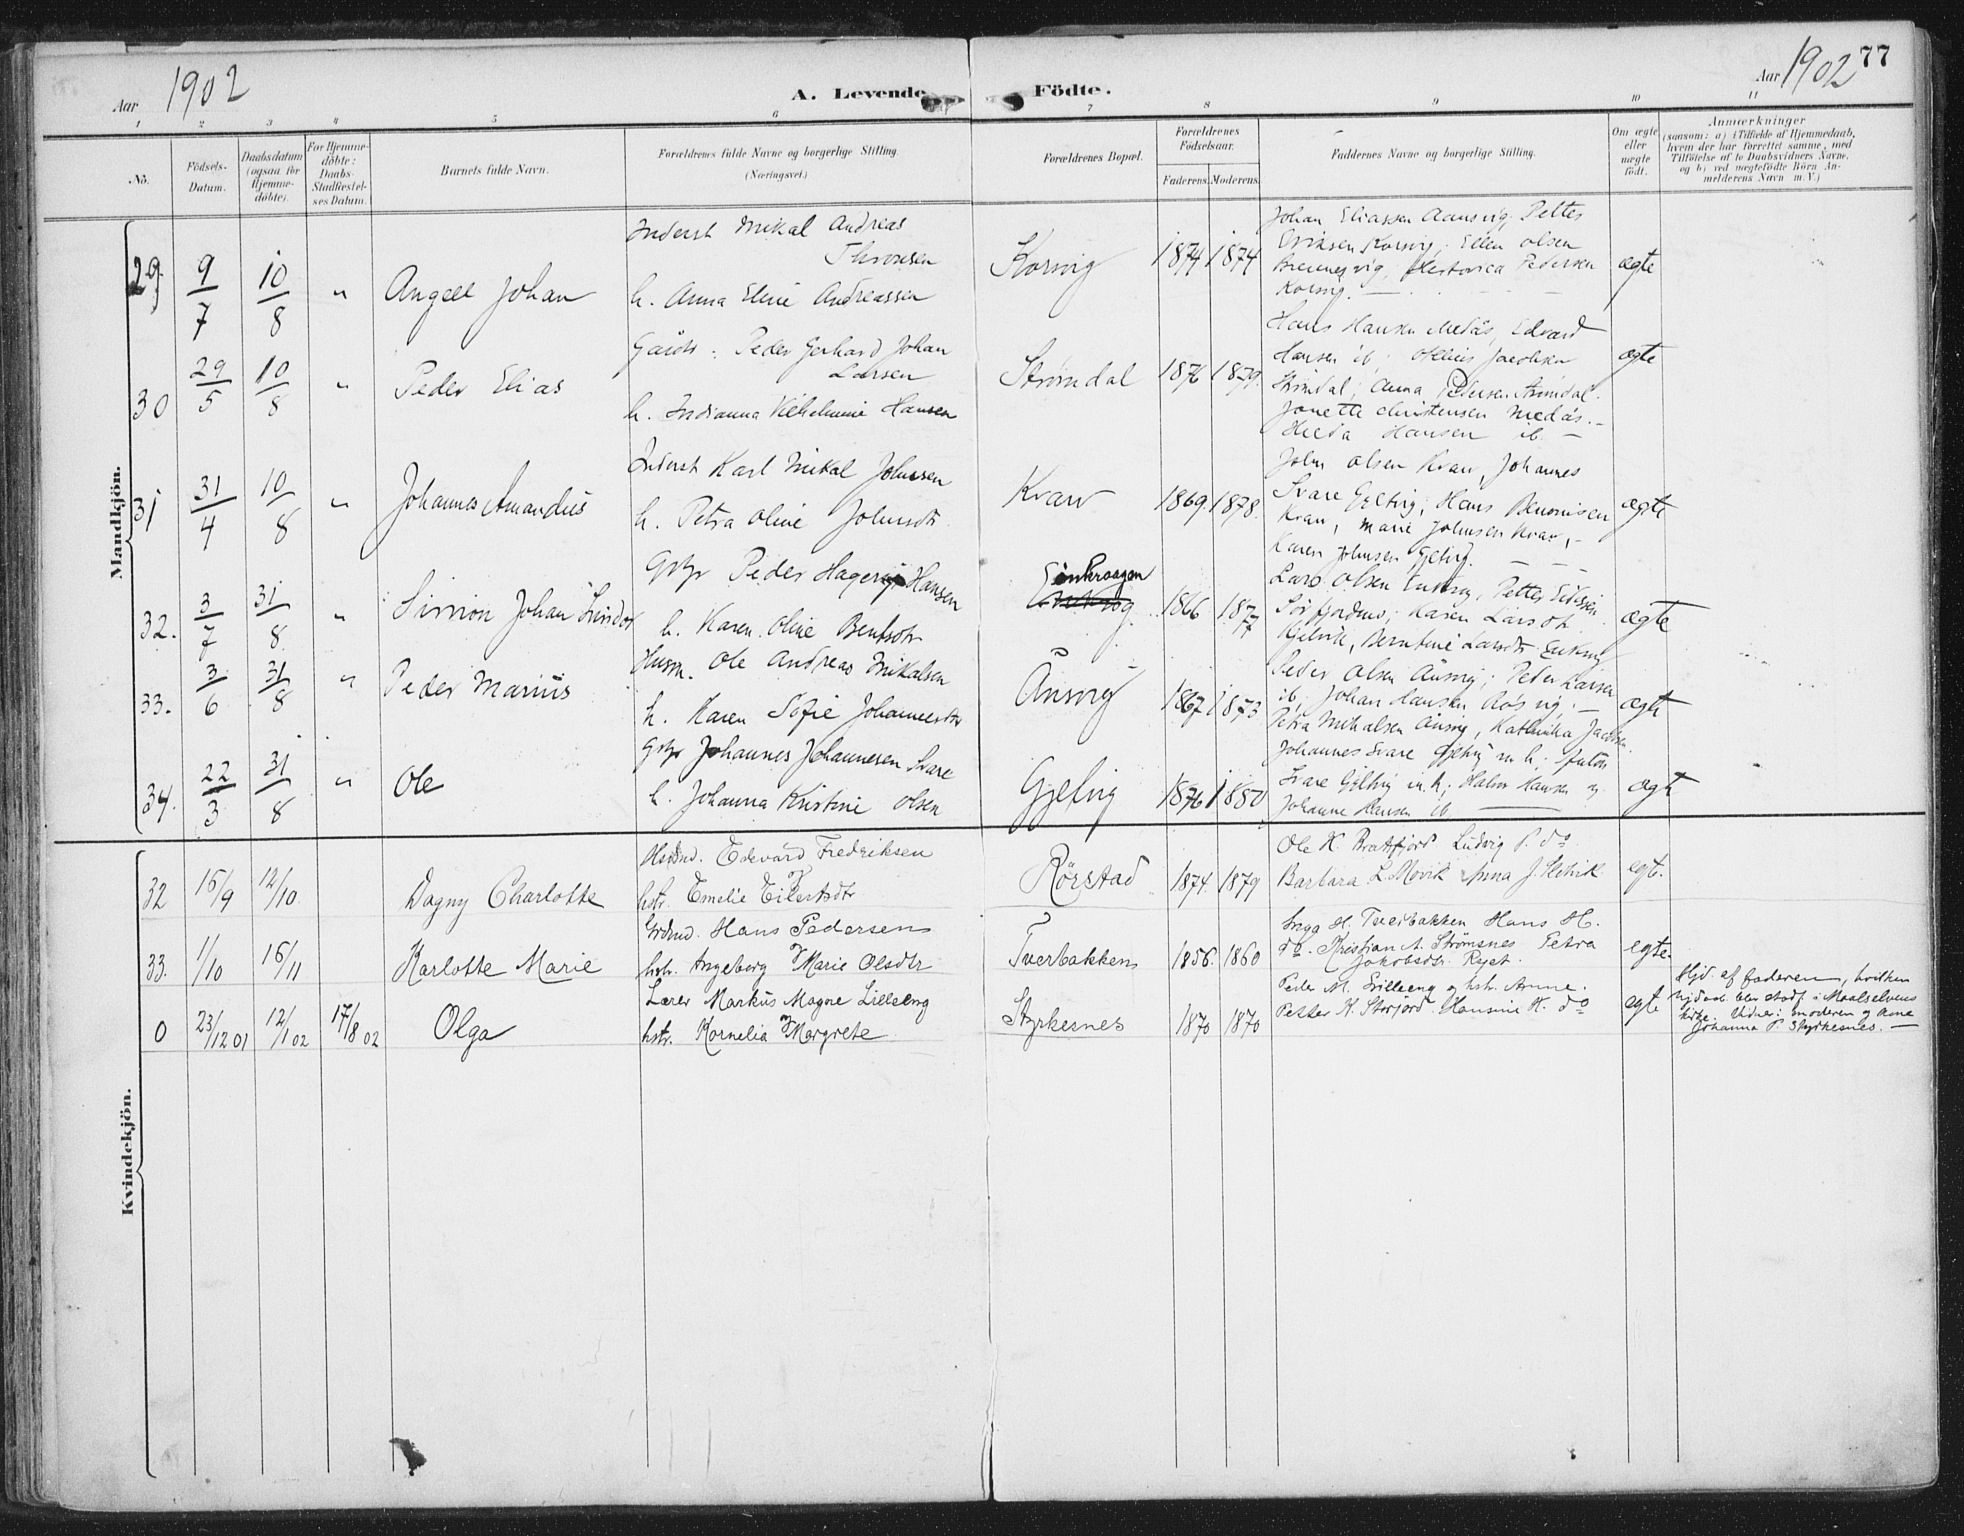 Aar 1902
A. Levende Födte.
Aar 1902 77
1 2 3 4 5 6 7 8 9 10 11
No.
Födsels-Datum.
Daabsdatum (ogsaa for Hjemme-döbte).
For Hjemme-döbte: Daabs-Stadfæstel-ses Datum.
Barnets fulde Navn.
Forældrenes fulde Navne og borgerlige Stilling.
(Næringsvei.)
Forældrenes Bopæl.
Forældrenes Födselsaar.
Faderens. Moderens.
Faddernes Navne og borgerlige Stilling.
Om ægte eller uægte födt.
Anmærkninger
(saasom: a) i Tilfælde af Hjemmedaab, hvem der har forrettet samme, med Tilföielse af to Daabsvidners Navne, og b) ved uægtefödte Börn Anmelderens Navn m. V.)
Mandkjön.
29 9/7 10/8 " Angell Johan
Inderst Mikal Andreas
Thronsen
h. Anna Eline Andreassen
Korsvig 1874 1874
Johan Eliassen Aansvig, Petter
Eriksen Korsvig, Ellen Olsen
Brennesvig, Pedersen
Korsvig.
ægte
30 29/5 10/8 " Peder Elias
Gaards. Peder Gerhard Johan
Larsen
h. Indianna Vilhelmine Hansen
Strömdal 1876 1879.
Hans Hansen Medås, Edvard
Hansen ib; Jacobsen
Strömdal; Anna Pedersen Strömdal.
Jonette Christensen Medås.
Hilda Hansen ib.
ægte
31 31/4 10/8 " Johannes Amandus
Inderst Karl Mikal Johnsen
h. Petra Oline Johnsdtr.
Kvarv 1869. 1878.
John Olsen Kvarv, Johannes
Svare Gjelvig; Hans Benonisen
Kvarv, Marie Johnsen Kvarv,
Karen Johnsen Gjelvig.
ægte
32. 3/7 31/8. " Simon Johan Lindor
Grbr Peder Hagerup Hansen
h. Karen Oline Bentsdtr
Einkroogen
1866. 1877
Lars Olsen Enkrog, Petter
Sörfjordmo; Karen Larsdt
Gjelvik, Berntine Larsdtr Enkrog
ægte
33. 3/6 31/8 " Peder Marius
Husm. Ole Andreas Mikalsen
h. Karen Sofie Johannesdtr
Ånsvig 1867 1873
Peder Olsen Ånsvig; Peder Larsen
ib, Johan Hansen Røsvig.
Petra Mikalsen Ånsvig, Kathinka Jacobsen.
ægte
34. 22/3 31/8 " Ole
Grbr Johannes Johannesen Svare
h. Johanna Kristine Olsen
Gjelvig 1876 1880
Johannes Svare Gjelvig m h; Anton
Svare Gjelvig m.h; Halvor Hansen og
Johanne Hansen ib.
ægte
Kvindekjön.
32 15/9 12/10. Dagny Charlotte
Edevard Fredriksen
hstr. Emelie Eilertsdtr
Rörstad 1874. 1879
Ole K. Bratfjord Ludvig P. do
Barbara L. Movik Anna J. Helvik
egt.
33. 1/10 16/11 Karlotte Marie
Grdmd. Hans Pedersen
hstr. Ingeborg Marie Olsdtr
Tverbakken 1856. 1860
Inga H. Tverbakken Hans H.
do. Kristian A. Strömsnes Petra
Jakobsdtr.
egte.
0 23/12 01 12/1 02 17/8 02 Olga
Lærer Markus Magne Lilleeng
hstr. Kornelia Margrete
Styrkesnes 1870 1870
Peder M. Lilleeng og hstr. Anne.
Petter K. Storjord. Hansine K. do
egte
Hjd. af faderen, hvilken
hjdaab blev stadf. i Maalselvens
kirke. Vidner: moderen og
Johanna P. Styrkesnes.